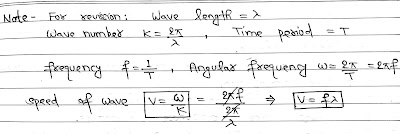 Note - For revision: Wave length = λ
Wave number K = 2π/λ , Time period = T
frequency f = 1/T , Angular frequency ω = 2π/T = 2πf
speed of wave V = ω/K = 2πf/(2π/λ) ⇒ V = fλ